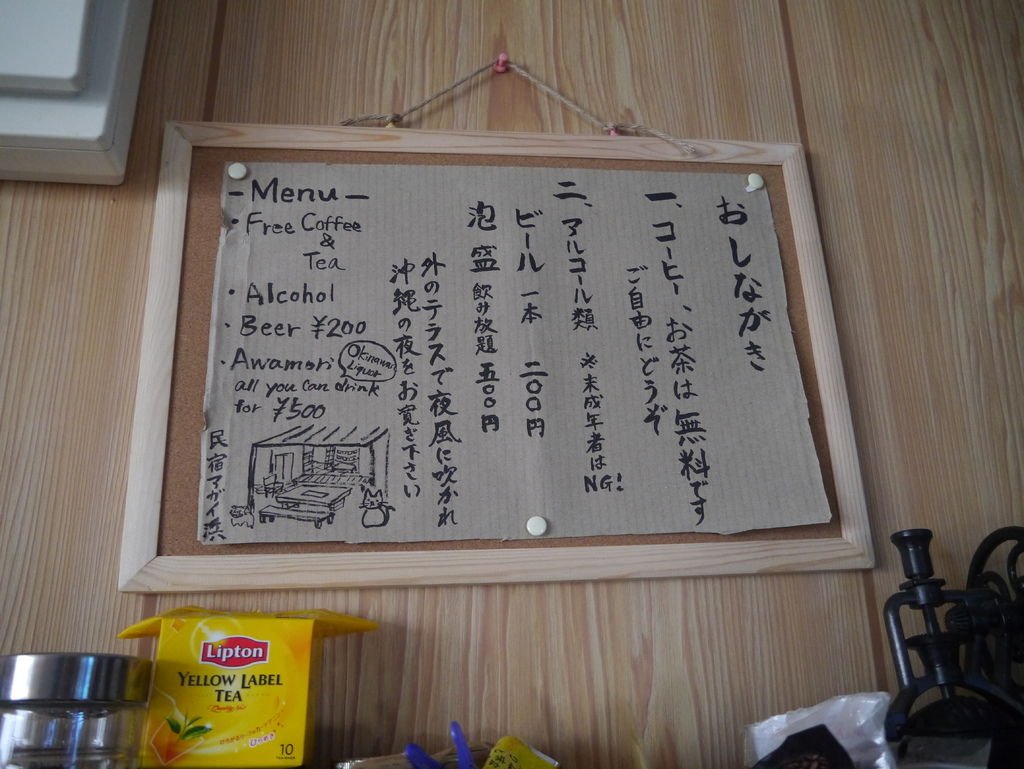 おしながき
一、コーヒー、お茶は無料です
ご自由にどうぞ
二、アルコール類 ※未成年者はNG!
ビール 一本 二〇〇円
泡盛 飲み放題 五〇〇円
外のテラスで夜風に吹かれ
沖縄の夜をお寛ぎ下さい
- Menu -
・Free Coffee
&
Tea
・Alcohol
・Beer ¥200
・Awamori
Okinawa
Liquor
all you can drink
for ¥500
民宿アガイ浜
Lipton
YELLOW LABEL
TEA
Quality No.1
10